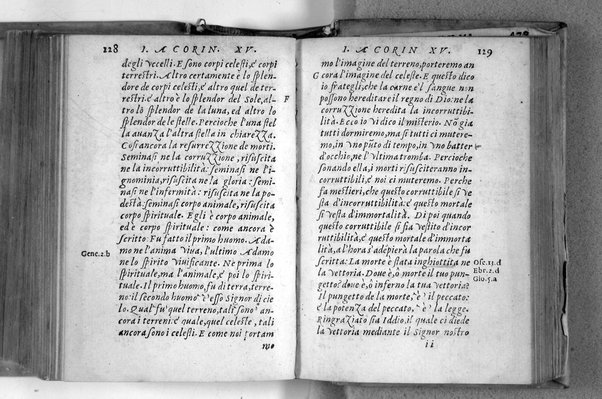 128 I. A CORIN. XV.
degli vccelli. E sono corpi celesti, e corpi
terrestri. Altro certamente è lo splen-
dore de corpi celesti, e altro quel de ter-
restri. e altro è lo splendor del Sole, al-
tro lo splendor de la luna, ed altro lo
splendor de le stelle. Percioche l'una stel
la auanza l'altra stella in chiarezza.
Cosi ancora la resurrezzione de morti.
Seminasi ne la corruzzione, risuscita
ne la incorruttibilità: seminasi ne l'i-
gnominia, risuscita ne la gloria: semi-
nasi ne l'infermità: risuscita ne la po-
destà. seminasi corpo animale, risuscita
corpo spirituale. Egli è corpo animale,
ed è corpo spirituale: come ancora è
scritto. Fu fatto il primo huomo. Ada-
mo ne l'anima viua, l'ultimo Adamo
ne lo spirito viuificante. Ne prima lo
spirituale, ma l'animale, e poi lo spiri-
tuale. Il primo huomo, fu di terra, terre-
no: il secondo huomo è esso Signor di cie
lo. Qual fu quel terreno, tali sono an-
cora i terreni: e quale, quel celeste, tali
ancora sono i celesti. E come noi portam
mo
F
Gene.2.b
I. A CORIN. XV. 129
mo l'imagine del terreno, porteremo an
cora l'imagine del celeste. E questo dico
io frategli, che la carne e'l sangue non
possono hereditare il regno di Dio: ne la
corruzzione heredita la incorruttibi-
lità. Ecco io vi dico il misterio. Nõ gia
tutti dormiremo, ma si tutti ci mutere-
mo, in vno puto di tempo, in vno batter
d'occhio, ne l'vltima tromba. Percioche
sonando ella, i morti risusciteranno in-
corruttibili, e noi ci muteremo. Perche
fa mestieri, che questo corruttibile si ve
sta d'incorruttibilità: e questo mortale
si vesta d'immortalità. Di poi quando
questo corruttibile si sia vestito d'incor
ruttibilità, e questo mortale d'immorta
lità, a l'hora s'adepierà la parola che fu
scritta: La morte è stata inghiottita ne
la vettoria. Doue è, ò morte il tuo pun-
getto? doue è, ò inferno la tua vettoria?
Il pungetto de la morte, è il peccato:
e la potenza del peccato, è la legge.
Ringraziato sia Iddio, il quale ci diede
la vettoria mediante il Signor nostro
ii
G
Ose.13.d
Ebr.2.d
Gio.5.a